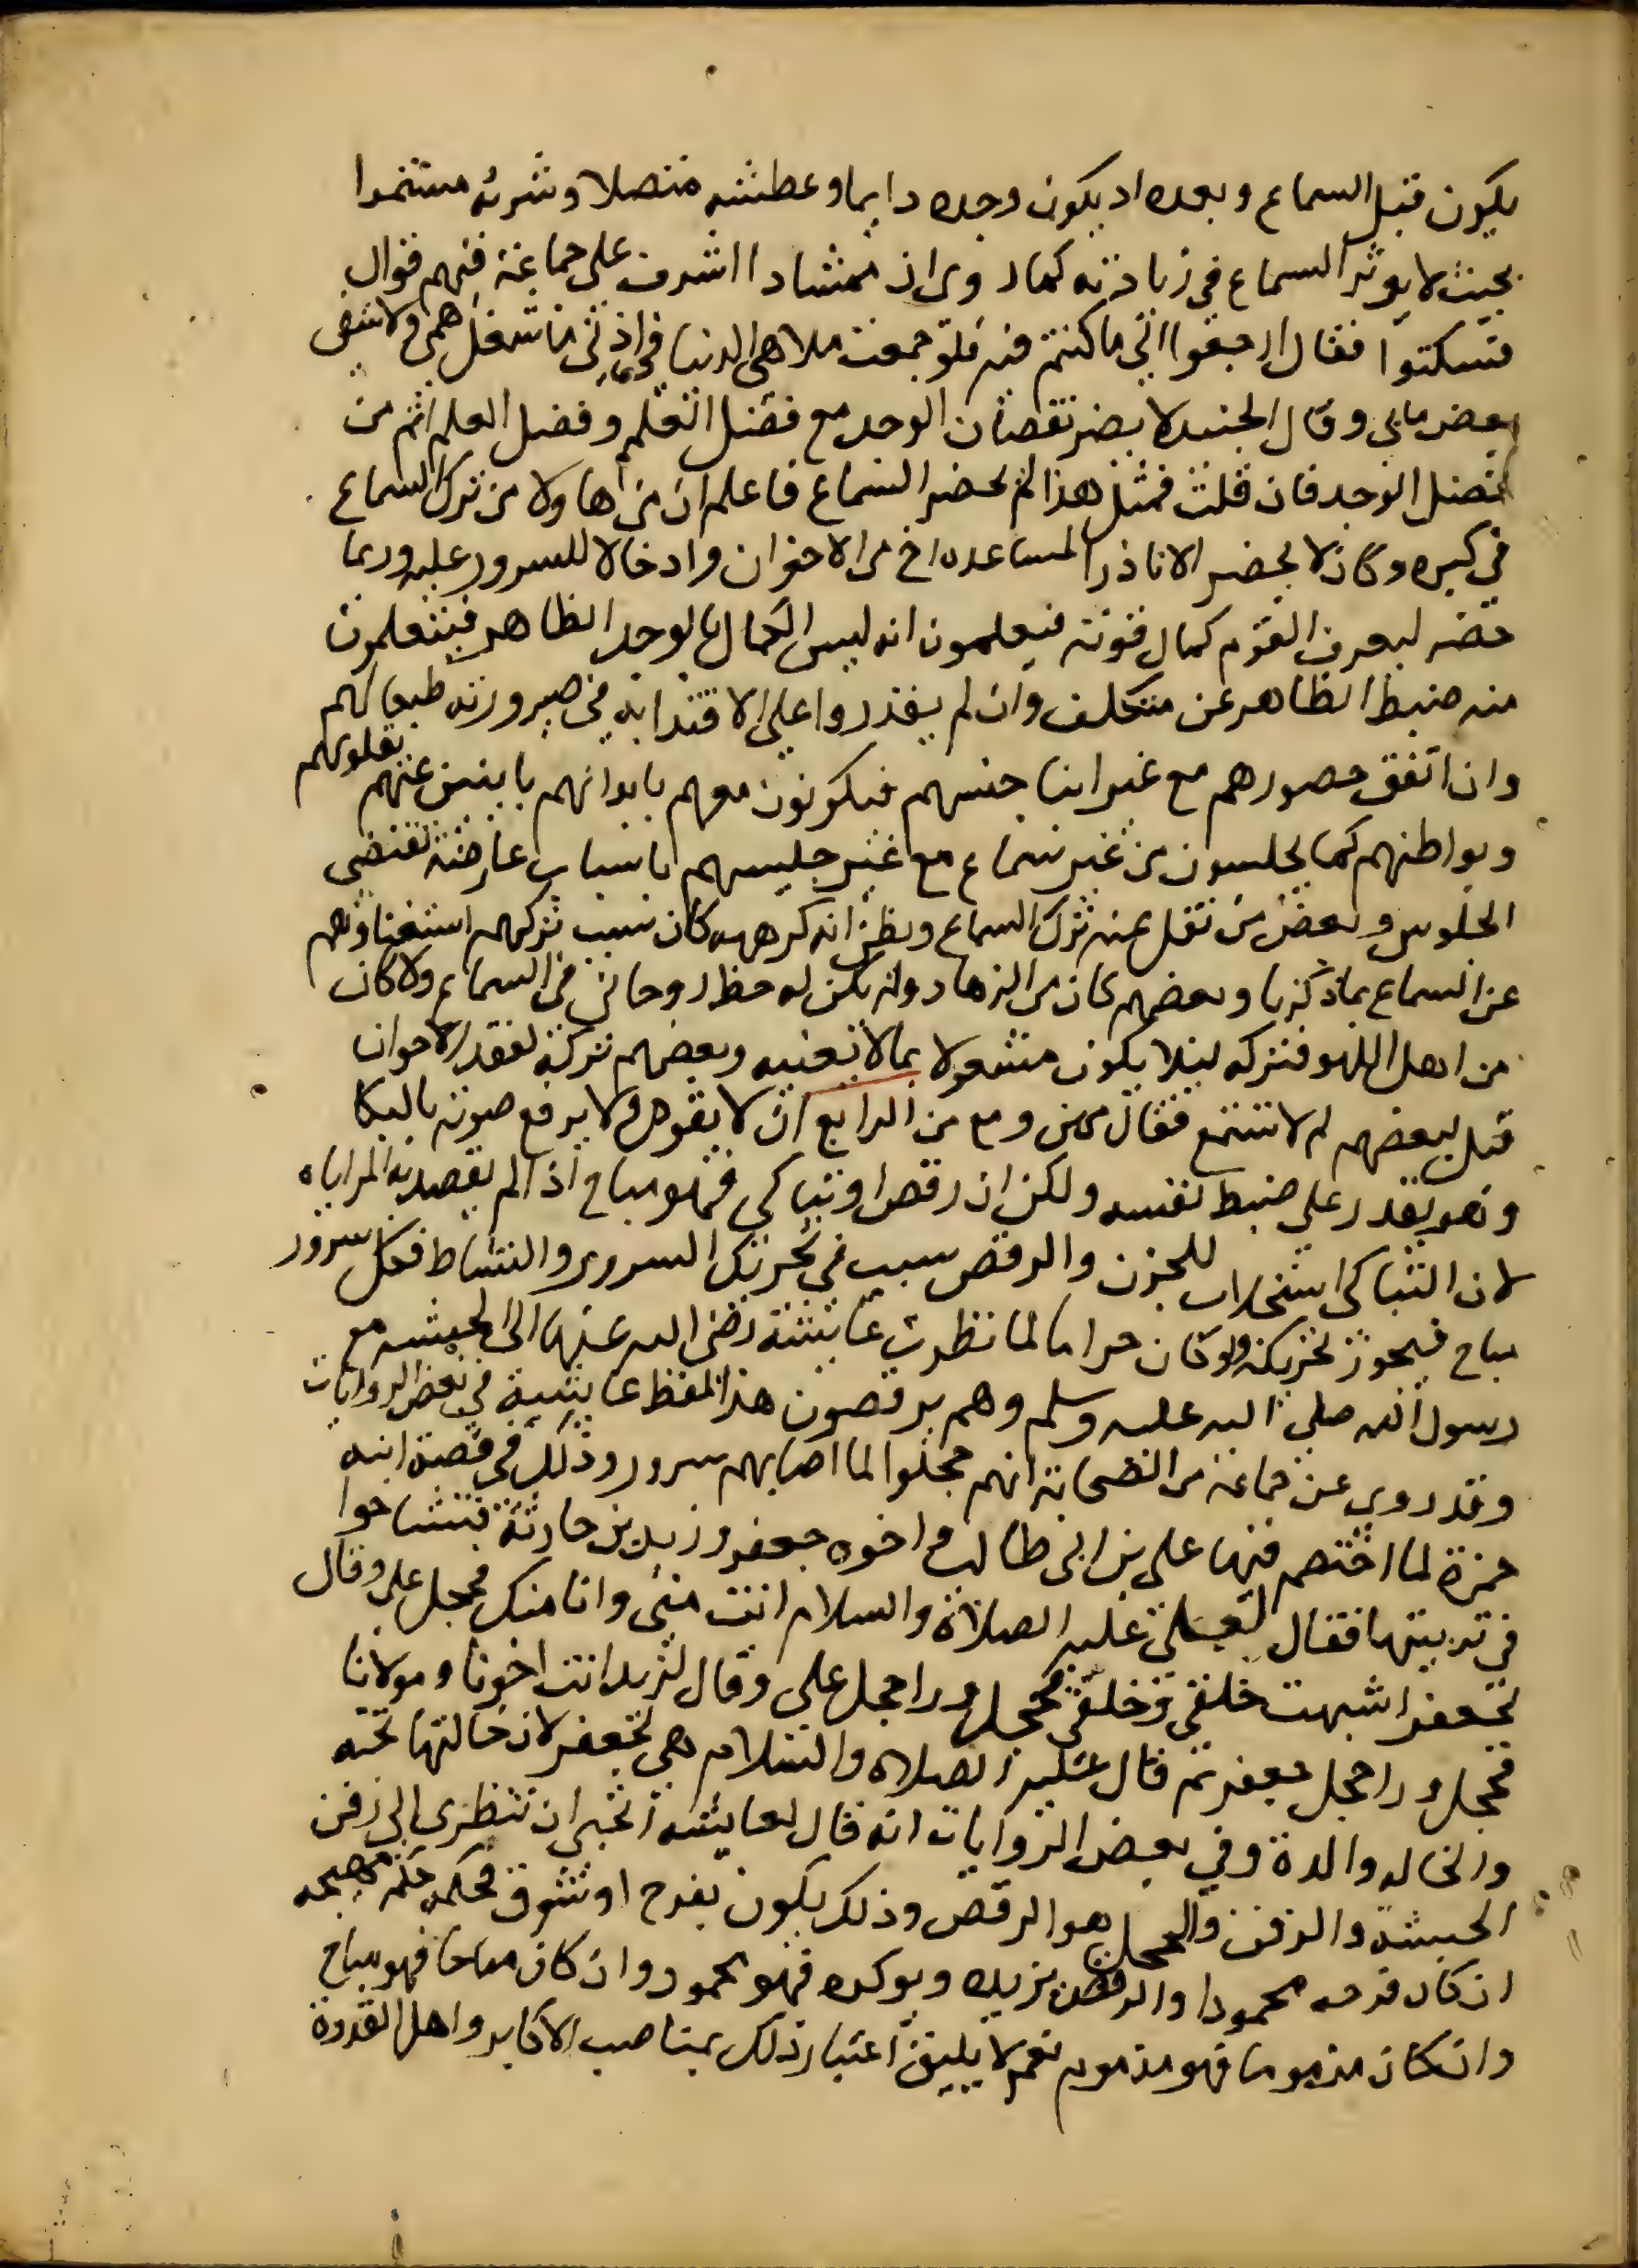 يكون قبل السماع وبعده اذ يكون وجده دايما وعطشه متصلا وشربه مستمرا
بحيث لا يوثر السماع في زيادته كما روى ان ممشادا اشرف على جماعة فيهم قوال
فسكتوا فقال ارجعوا الى ما كنتم فيه فلو جمعت ملاهي الدنيا في اذني ما شغل همي ولا شفى
بعض مابي وقال الجنيد لا يضر نقصان الوجد مع فضل العلم وفضل العلم اتم من
فضل الوجد فان قلت فمثل هذا لم يحضر السماع فاعلم ان من هاولا من ترك السماع
في كبره وكان لا يحضر الا نادرا لمساعدة اخ من الاخوان وادخالا للسرور عليه وربما
حضر ليعرف القوم كمال قوته فيعلمون انه ليس الكمال بالوجد الظاهر فيتعلمون
منه ضبط الظاهر عن متكلف وان لم يقدروا على الاقتدا به في صيرورته طبعا لهم
وان اتفق حضورهم مع غير ابنا جنسهم فيكونون معهم بابدانهم بايئين عنهم بقلوبهم
وبواطنهم كما يجلسون من غير سماع مع غير جليسهم باسباب عارضة تقتضي
الجلوس وبعض من نقل عنه ترك السماع ويظن انه كرهه كان سبب تركهم استغناوهم
عن السماع بما ذكرنا وبعضهم كان من الزهاد ولم يكن له حظ روحاني في السماع ولا كان
من اهل اللهو فتركه ليلا يكون مشغولا بما لا يعنيه وبعضهم تركه لفقد الاخوان
قيل لبعضهم لم لا تستمع فقال ممن ومع من الرابع ان لا يقوم ولا يرفع صوته بالبكا
وهو يقدر على ضبط نفسه ولكن ان رقص او تباكى فهو مباح اذا لم يقصد به المراياه
لان التباكى استجلاب للحزن والرقص سبب في تحريك السرور والنشاط فكل سرور
مباح فيجوز تحريكه ولو كان حراما لما نظرت عايشة رضى الله عنها الى الحبشه مع
رسول الله صلى الله عليه وسلم وهم يرقصون هذا لفظ عايشة في بعض الروايات
وقد روي عن جماعة من الصحابة انهم حجلوا لما اصابهم سرور وذلك في قصة ابنة
حمزة لما اختصم فيها علي بن ابى طالب واخوه جعفر وزيد بن حارثة فتشاحوا
في تربيتها فقال لعلي عليه الصلاة والسلام انت مني وانا منك فحجل علي وقال
لجعفر اشبهت خلقى وخلقي فحجل ورا حجل علي وقال لزيد انت اخونا ومولانا
فحجل ورا حجل جعفر ثم قال عليه الصلاه والسلام هي لجعفر لان خالتها تحته
والخاله والدة وفي بعض الروايات انه قال لعايشة اتحبي ان تنظرى الى زفن
الحبشة والزفن والحجل هو الرقص وذلك يكون بفرح او شوق فحكمه حكم مهيجه
ان كان فرحه محمودا والرقص يزيده ويوكده فهو محمود وان كان مباحا فهو مباح
وان كان مذموما فهو مذموم نعم لا يليق اعتبار ذلك بمناصب الاكابر واهل القدوة